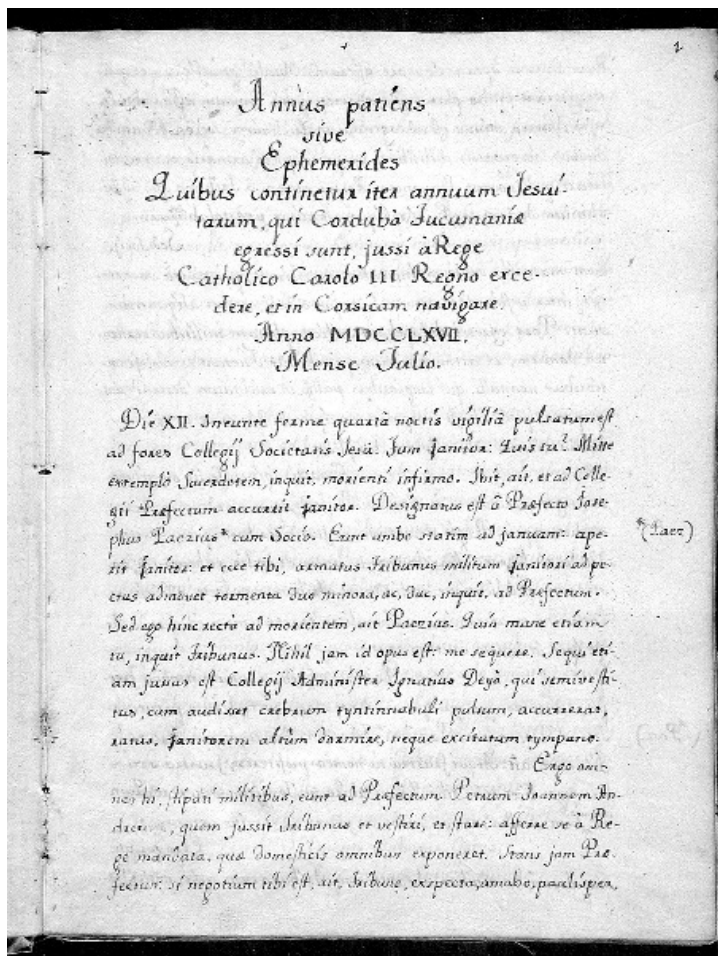 1
Annus patiens
sive
Ephemerides
Quibus continetur iter annuum Jesui-
tarum, qui Cordubâ Tucumaniæ
egressi sunt, jussi à Rege
Catholico Carolo III Regno exce-
dere, et in Corsicam navigare.
Anno MDCCLXVII.
Mense Julio.
Die XII. Ineunte fermè quartâ noctis vigiliâ pulsatum est
ad fores Collegij Societatis Jesu. Tum Janitor: Quis tu? Mitte
extemplo Sacerdotem, inquit, morienti infirmo. Ibit, ait, et ad Colle-
gii Præfectum accurrit Janitor. Designatus est â Præfecto Jose-
phus Paezius* cum Socio. Eunt ambo statim ad januam: ape-
rit Janitor: et ecce tibi, armatus Tribunus militum Janitori ad pe-
ctus admovet tormenta duo minora, ac, duc, inquit, ad Præfectum.
Sed ego hinc rectà ad morientem, ait Paezius. Quin mane etiam
tu, inquit Tribunus. Nihil jam id opus est: me sequere. Sequi eti-
am jussus est Collegij Administer Ignatius Deyà, qui semivesti-
tus, cum audisset crebrum tyntinnabuli pulsum, accurrerat,
ratus, Janitorem altùm dormire, neque excitatum tympano.
Ergo om-
nes hi, stipati militibus, eunt ad Præfectum Petrum Joannem An-
dreu, quem jussit Tribunus et vestiri, et stare: afferre se â Re-
ge mandata, quæ domesticis omnibus exponeret. Stans jam Præ-
fectus: si negotium tibi est, ait, Tribune, exspecta, amabo, paulisper,
*(Paez)